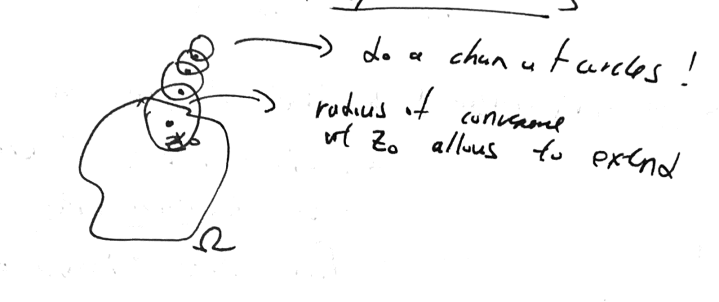 do a chain of circles!
radius of convergence
of z₀ allows to extend
z₀
Ω